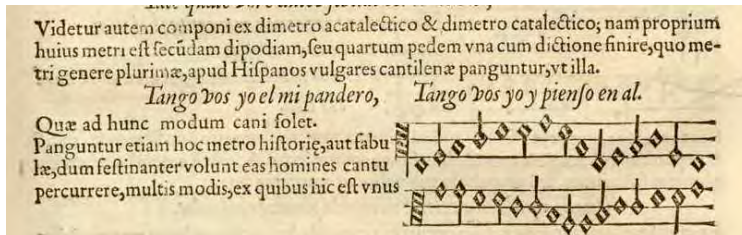 Videtur autem componi ex dimetro acatalectico & dimetro catalectico; nam proprium
huius metri est secũdam dipodiam, seu quartum pedem vna cum dictione finire, quo me-
tri genere plurimæ, apud Hispanos vulgares cantilenæ panguntur, vt illa.
Tango vos yo el mi pandero, Tango vos yo y pienso en al.
Quæ ad hunc modum cani solet.
Panguntur etiam hoc metro historię, aut fabu
læ, dum festinanter volunt eas homines cantu
percurrere, multis modis, ex quibus hic est vnus